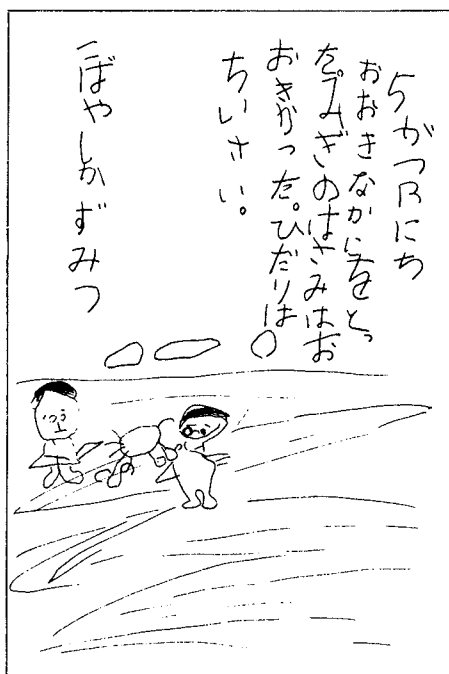 5がつ13にち
おおきなかにをとっ
た。みぎのはさみはお
おきかった。ひだりは
ちいさい。
こばやしかずみつ